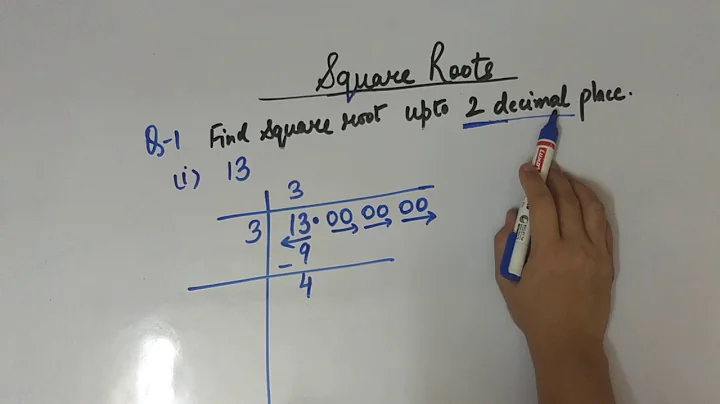 Square Roots
Q-1 Find square root upto 2 decimal place.
(i) 13
3
3 13.00 00 00
- 9
4